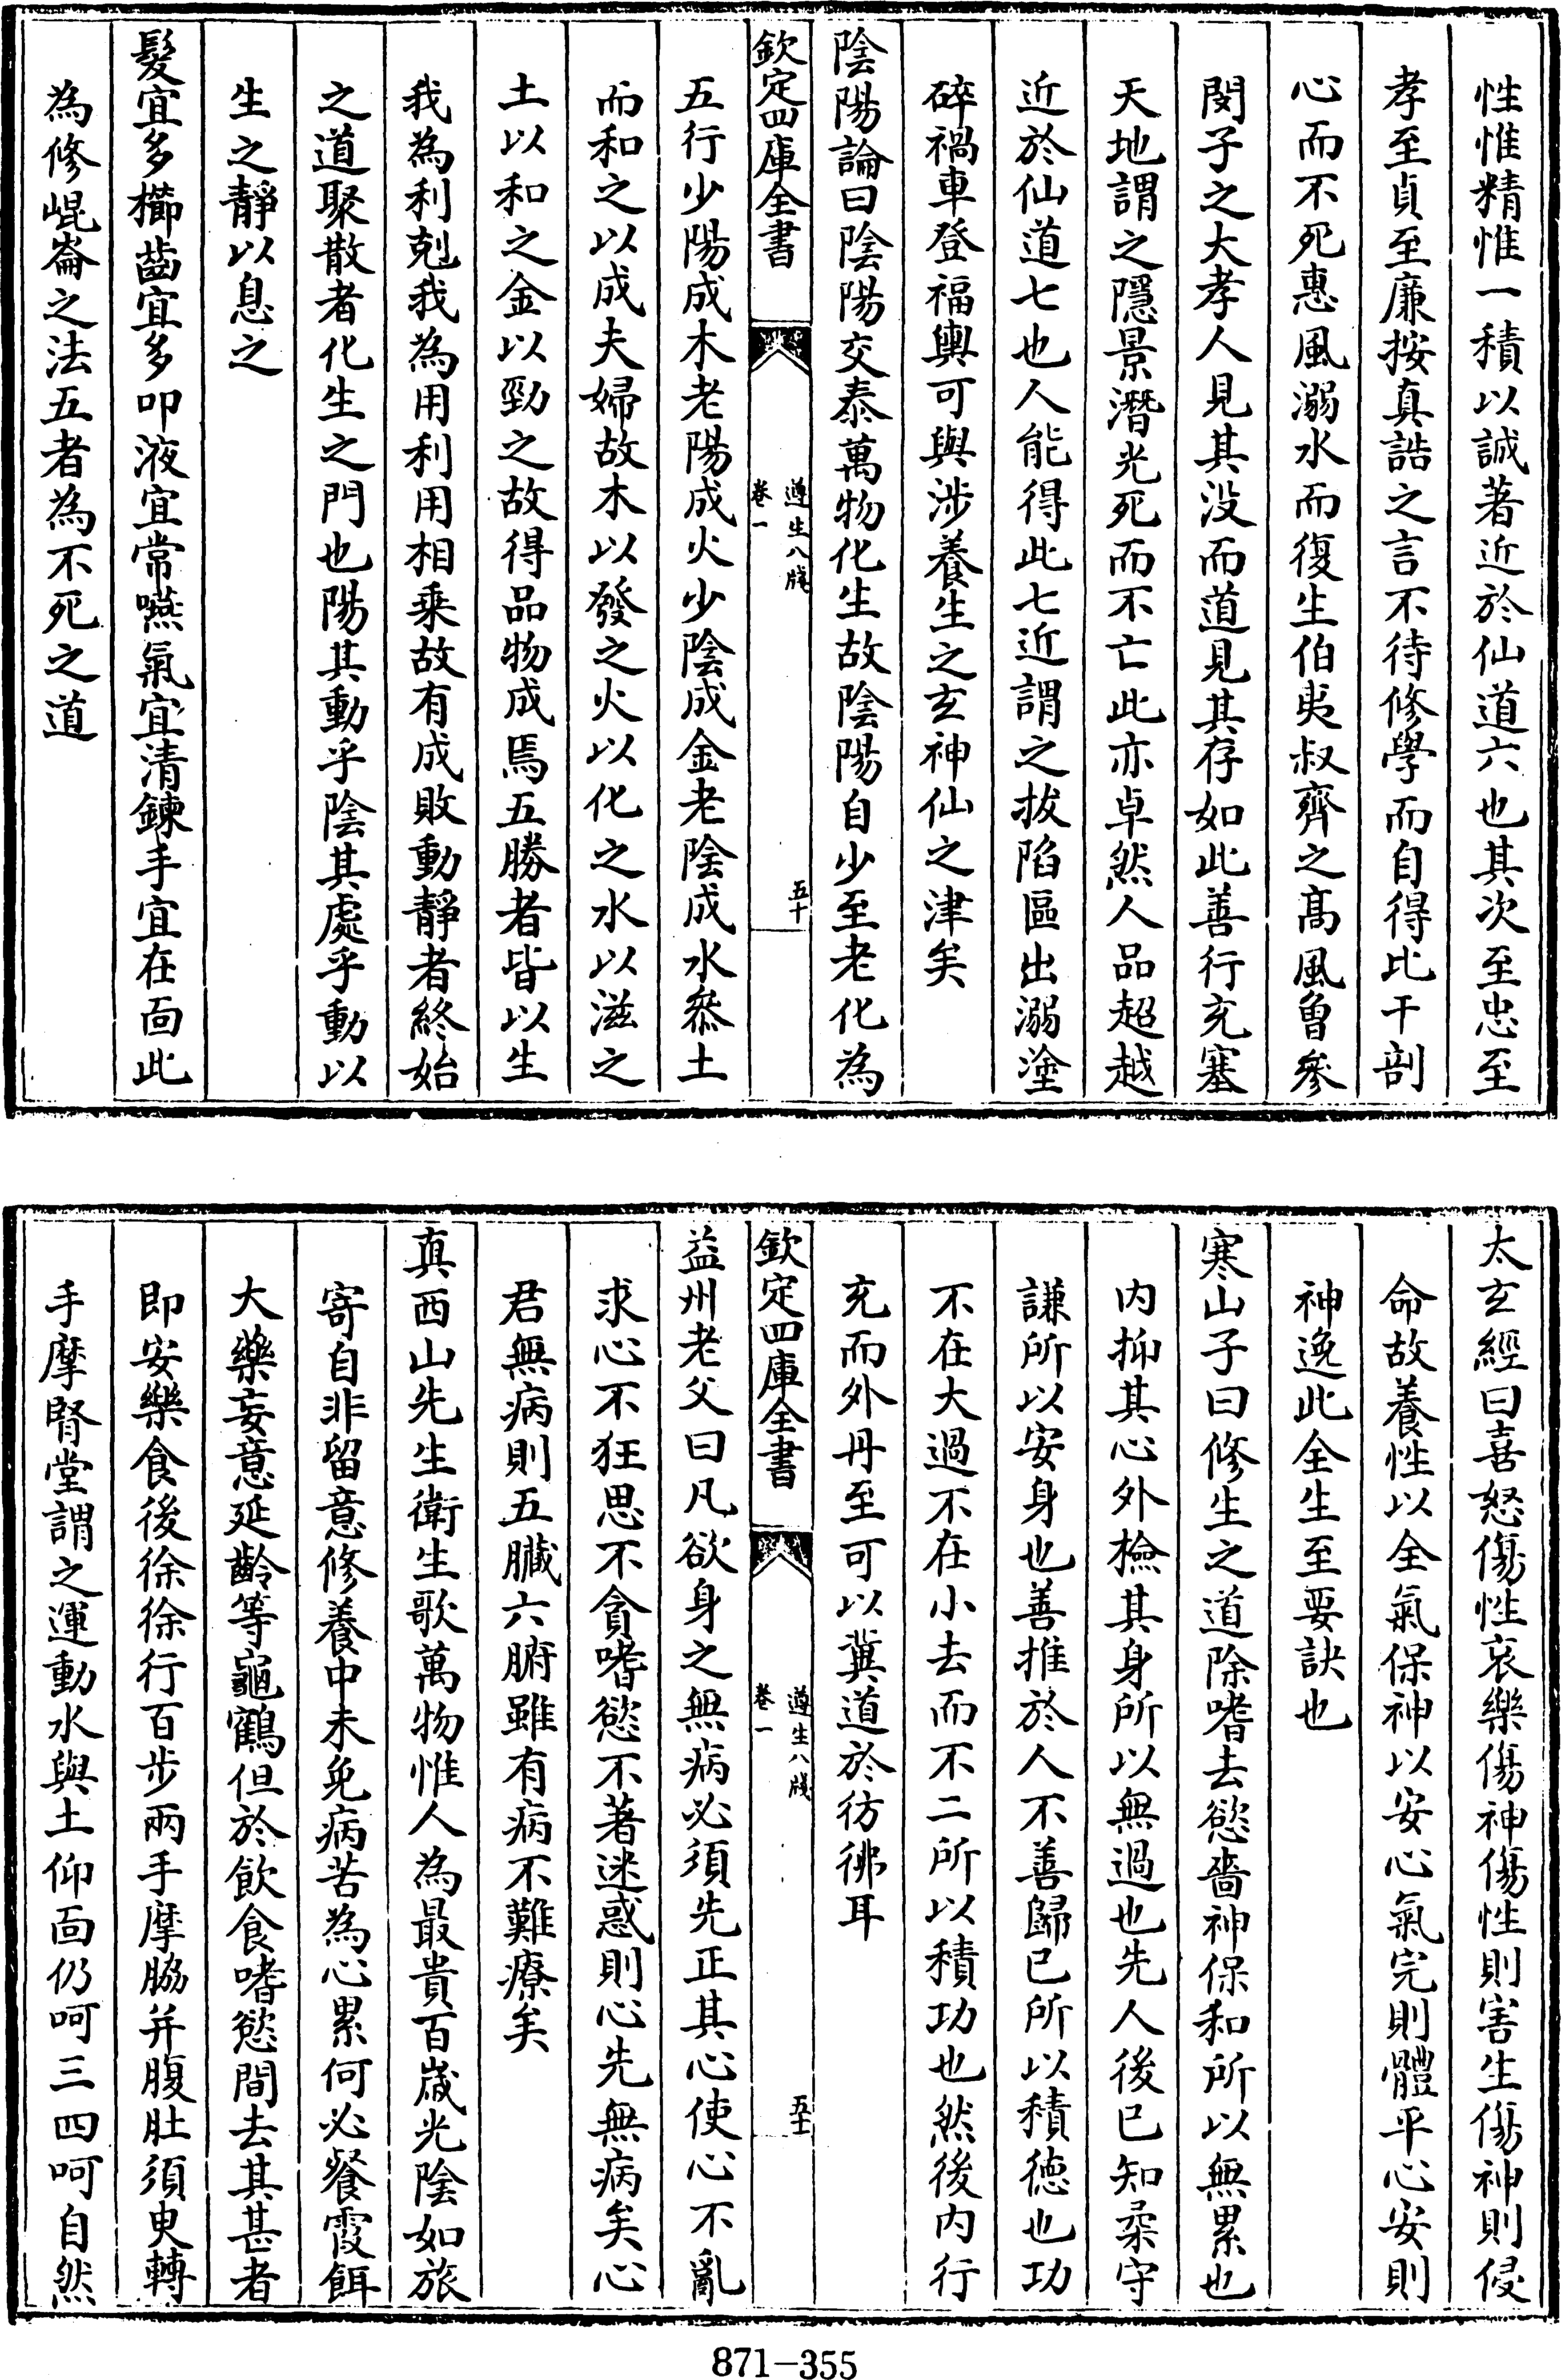 性惟精惟一積以誠著近於仙道六也其次至忠至
孝至貞至廉按真誥之言不待修學而自得比干剖
心而不死惠風溺水而復生伯夷叔齊之髙風曾參
閔子之大孝人見其没而道見其存如此善行充塞
天地謂之隱景潛光死而不亡此亦卓然人品超越
近於仙道七也人能得此七近謂之拔陷區出溺塗
碎禍車登福輿可與涉養生之玄神仙之津矣
陰陽論曰陰陽交泰萬物化生故陰陽自少至老化為
欽定四庫全書
遵生八牋
卷一
五十
五行少陽成木老陽成火少陰成金老陰成水叅土
而和之以成夫婦故木以發之火以化之水以滋之
土以和之金以勁之故得品物成焉五勝者皆以生
我為利剋我為用利用相乘故有成敗動靜者終始
之道聚散者化生之門也陽其動乎陰其處乎動以
生之靜以息之
髮宜多櫛齒宜多叩液宜常嚥氣宜清鍊手宜在面此
為修崐崙之法五者為不死之道
太玄經曰喜怒傷性哀樂傷神傷性則害生傷神則侵
命故養性以全氣保神以安心氣完則體平心安則
神逸此全生至要訣也
寒山子曰修生之道除嗜去慾嗇神保和所以無累也
内抑其心外檢其身所以無過也先人後已知柔守
謙所以安身也善推於人不善歸已所以積徳也功
不在大過不在小去而不二所以積功也然後内行
充而外丹至可以冀道於彷彿耳
欽定四庫全書
遵生八牋
卷一
五十一
益州老父曰凡欲身之無病必須先正其心使心不亂
求心不狂思不貪嗜慾不著迷惑則心先無病矣心
君無病則五臟六腑雖有病不難療矣
真西山先生衛生歌萬物惟人為最貴百嵗光陰如旅
寄自非留意修養中未免病苦為心累何必餐霞餌
大藥妄意延齡等龜鶴但於飲食嗜慾間去其甚者
即安樂食後徐徐行百步兩手摩脇并腹肚須臾轉
手摩腎堂謂之運動水與土仰面仍呵三四呵自然
871—355